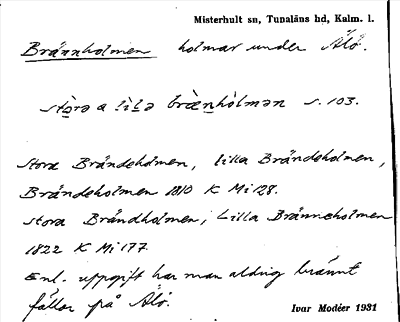 Misterhult sn, Tunaläns hd, Kalm. l.
Brännholmen holmar under Älö.
stọra a lila bræ̀nhòlmən s. 103.
Stora Brändeholmen, lilla Brändeholmen,
Brändeholmen 1810 K Mi 28.
Stora Brändholmen, Lilla Bränneholmen
1822 K Mi 177.
Enl. uppgift har man aldrig bränt
fällor på Älö.
Ivar Modéer 1931